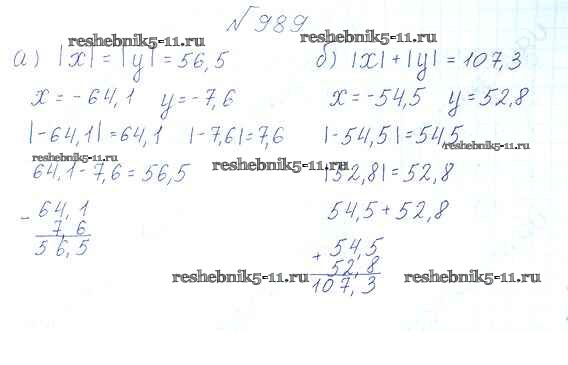 №989
reshebnik5-11.ru
reshebnik5-11.ru
а) |x| = |y| = 56,5
x = -64,1 y = -7,6
|-64,1| = 64,1 |-7,6| = 7,6
reshebnik5-11.ru
64,1 - 7,6 = 56,5
- 64,1
7,6
56,5
б) |x| + |y| = 107,3
x = -54,5 y = 52,8
|-54,5| = 54,5
reshebnik5-11.ru
reshebnik5-11.ru
|52,8| = 52,8
54,5 + 52,8
+ 54,5
52,8
107,3
reshebnik5-11.ru
reshebnik5-11.ru